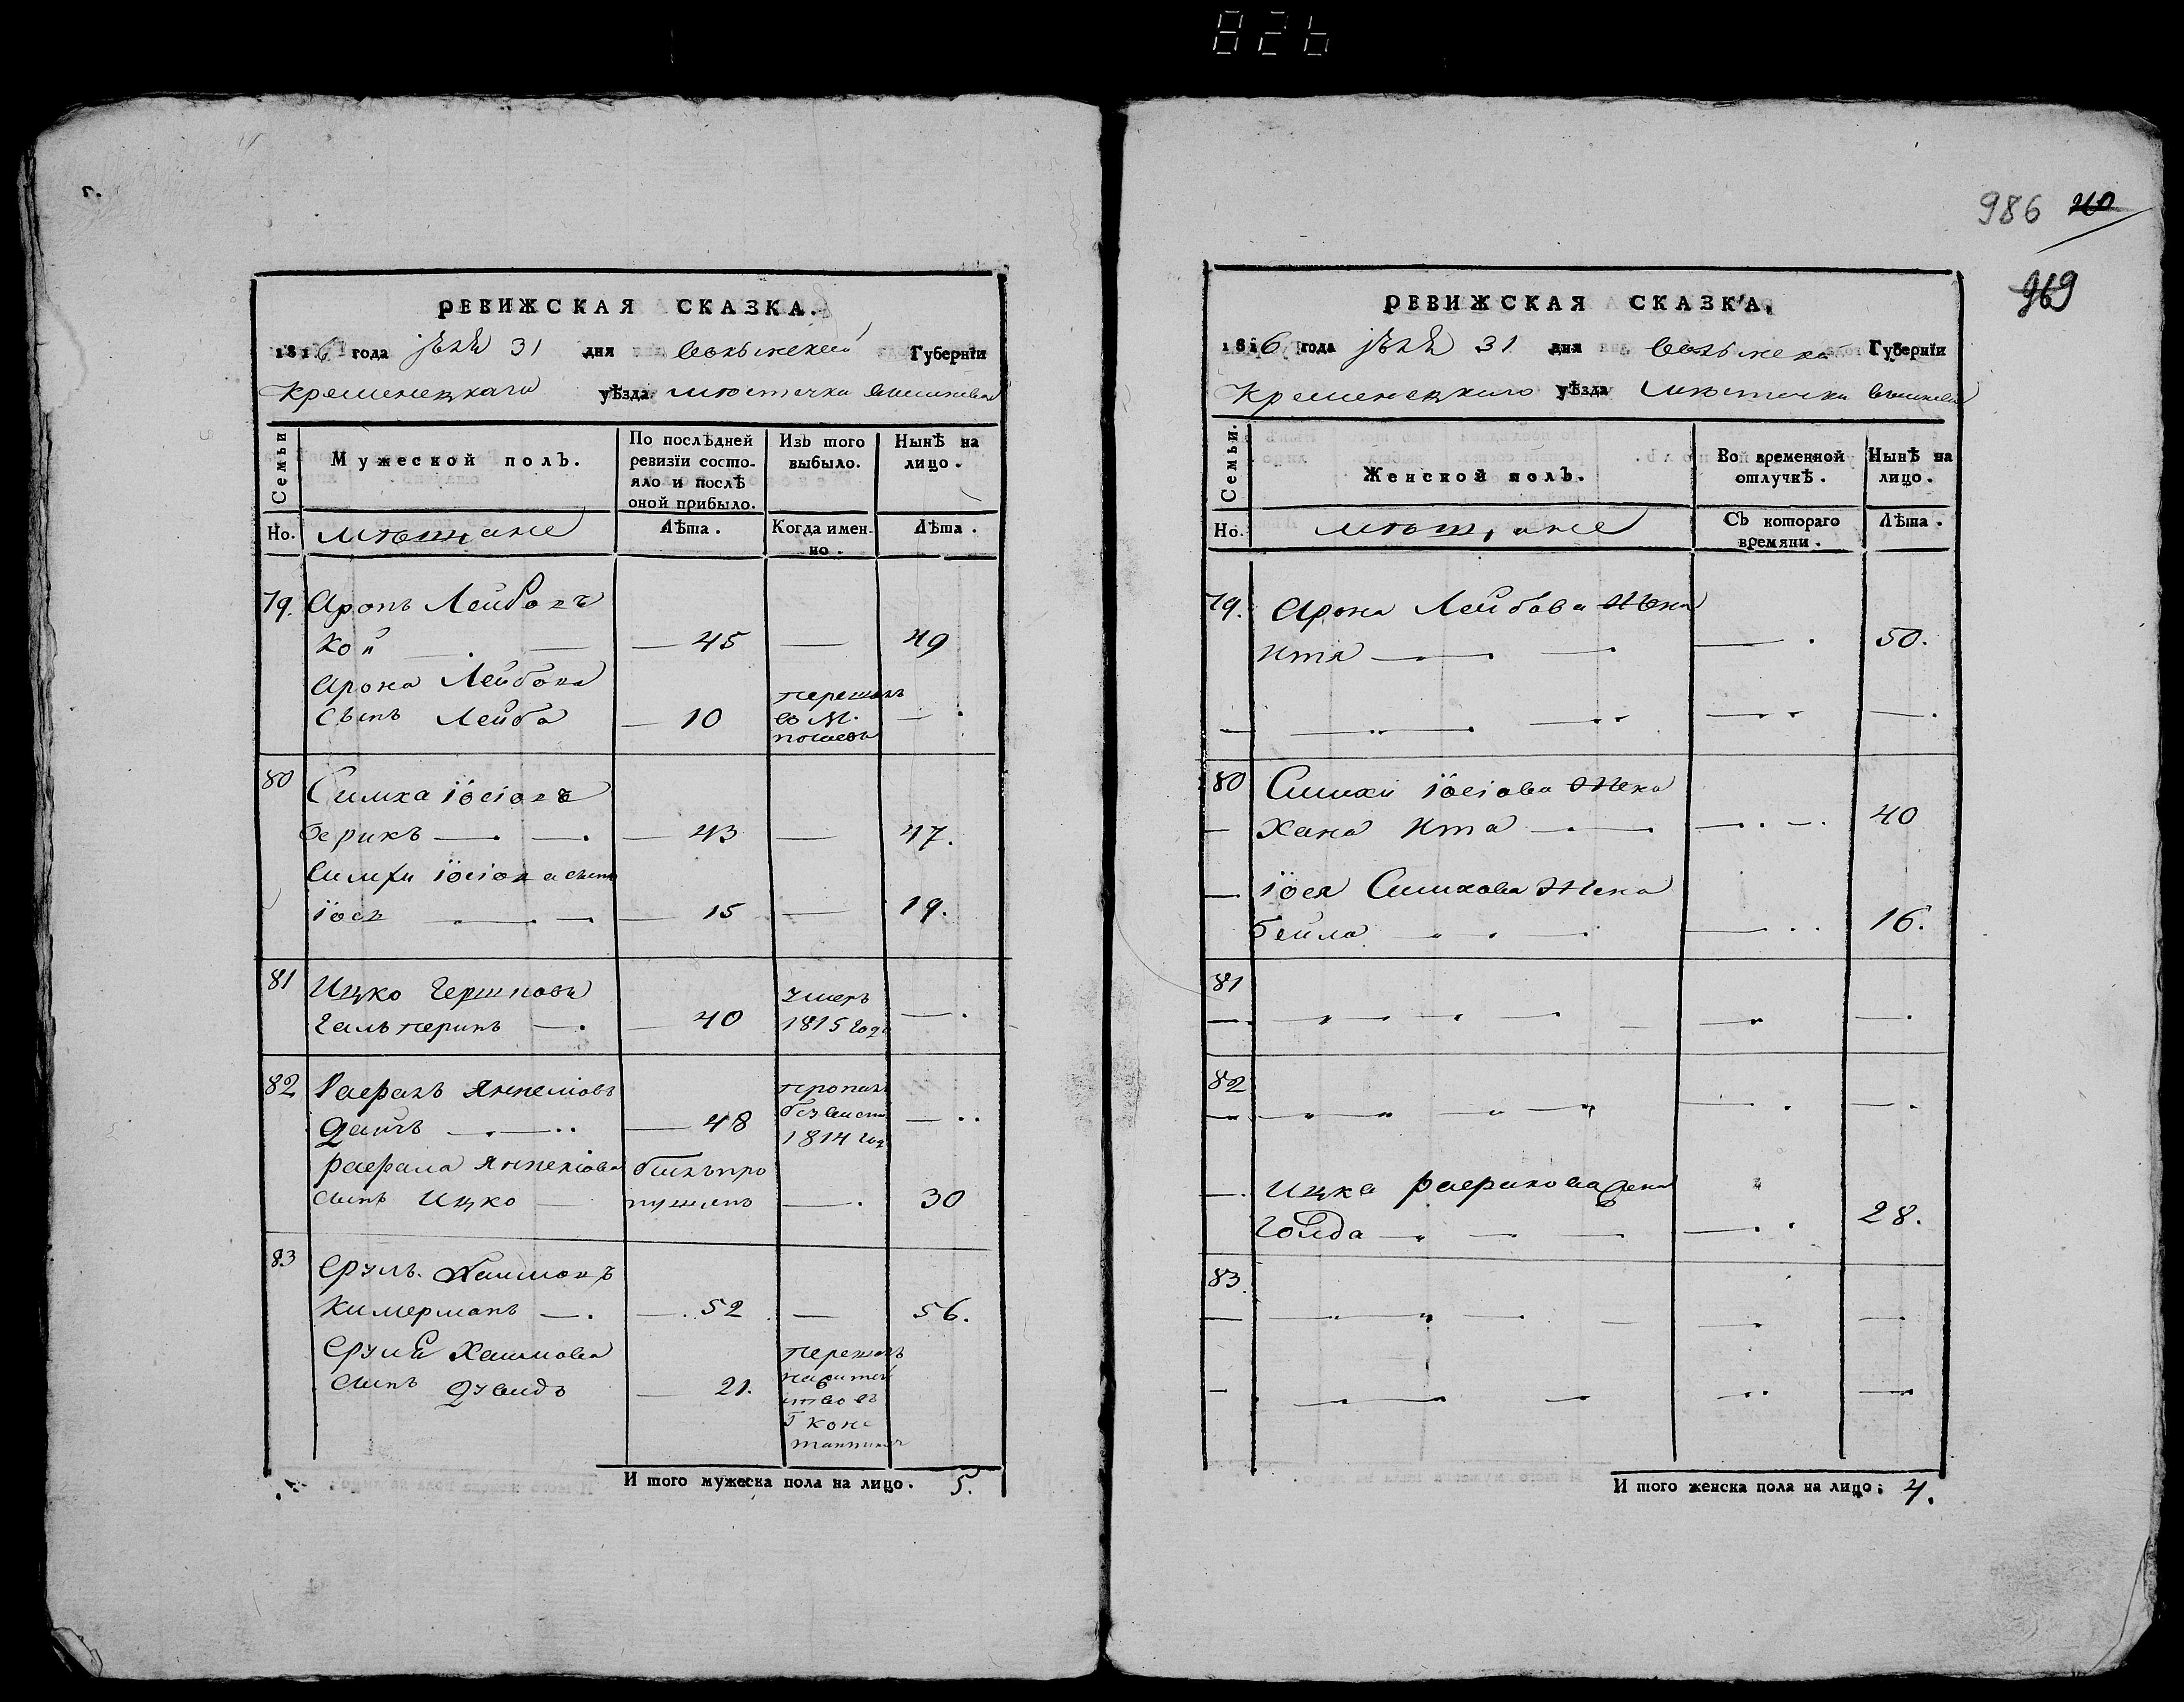 826
986 210
969
РЕВИЖСКАЯ СКАЗКА.
1816 года Июля 31 дня Волынской Губернїи
Кременецкаго уѣзда местечка Вишневца
Семьи
Мужеской полъ.
По послѣдней ревизїи состояло и послѣ оной прибыло.
Изъ того выбыло.
Нынѣ на лицо.
Но.
мещане
Лѣта.
Когда именно.
Лѣта.
79. Аронъ Лейбовъ
Кой — 45 — 49
Арона Лейбова
сынъ Лейба — 10 перешолъ в м. —
80 Симха Іосіовъ
Берикъ — 43 — 47.
Симхи Іосіова сынъ
Іось — 15 — 19.
81 Ицко Гершковъ
Гальперинъ — 40 умеръ 1815 года —
82 Рафалъ Янкеліовъ
— 48 пропалъ безвести 1814 года —
Рафала Янкеліова былъ про
сынъ Ицко — пущенъ — 30
83 Сруль Хаимовъ
Кимерманъ — 52 — 56.
Сруля Хаимова
сынъ Дувидъ — 21. перешолъ
И того мужеска пола на лицо. 5.
РЕВИЖСКАЯ СКАЗКА.
1816 года Июля 31 дня Волынской Губернїи
Кременецкаго уѣзда местечка Вишневца
Семьи.
Женской полъ.
Во временной отлучкѣ.
Нынѣ на лицо.
Но.
мещане
Съ котораго времяни.
Лѣта.
79. Арона Лейбова жена
Итя — — 50.
80 Симхи Іосіова жена
Хана Ита — — 40
— Іося Симхова жена
Бейла — — 16.
81
82
— Ицка Рафалова жена
Голда — — 28.
83.
И того женска пола на лицо: 4.